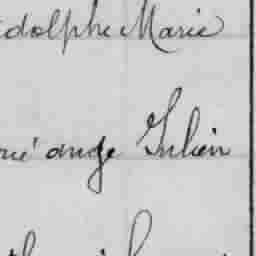 dolphe Marie
rié ange Julien